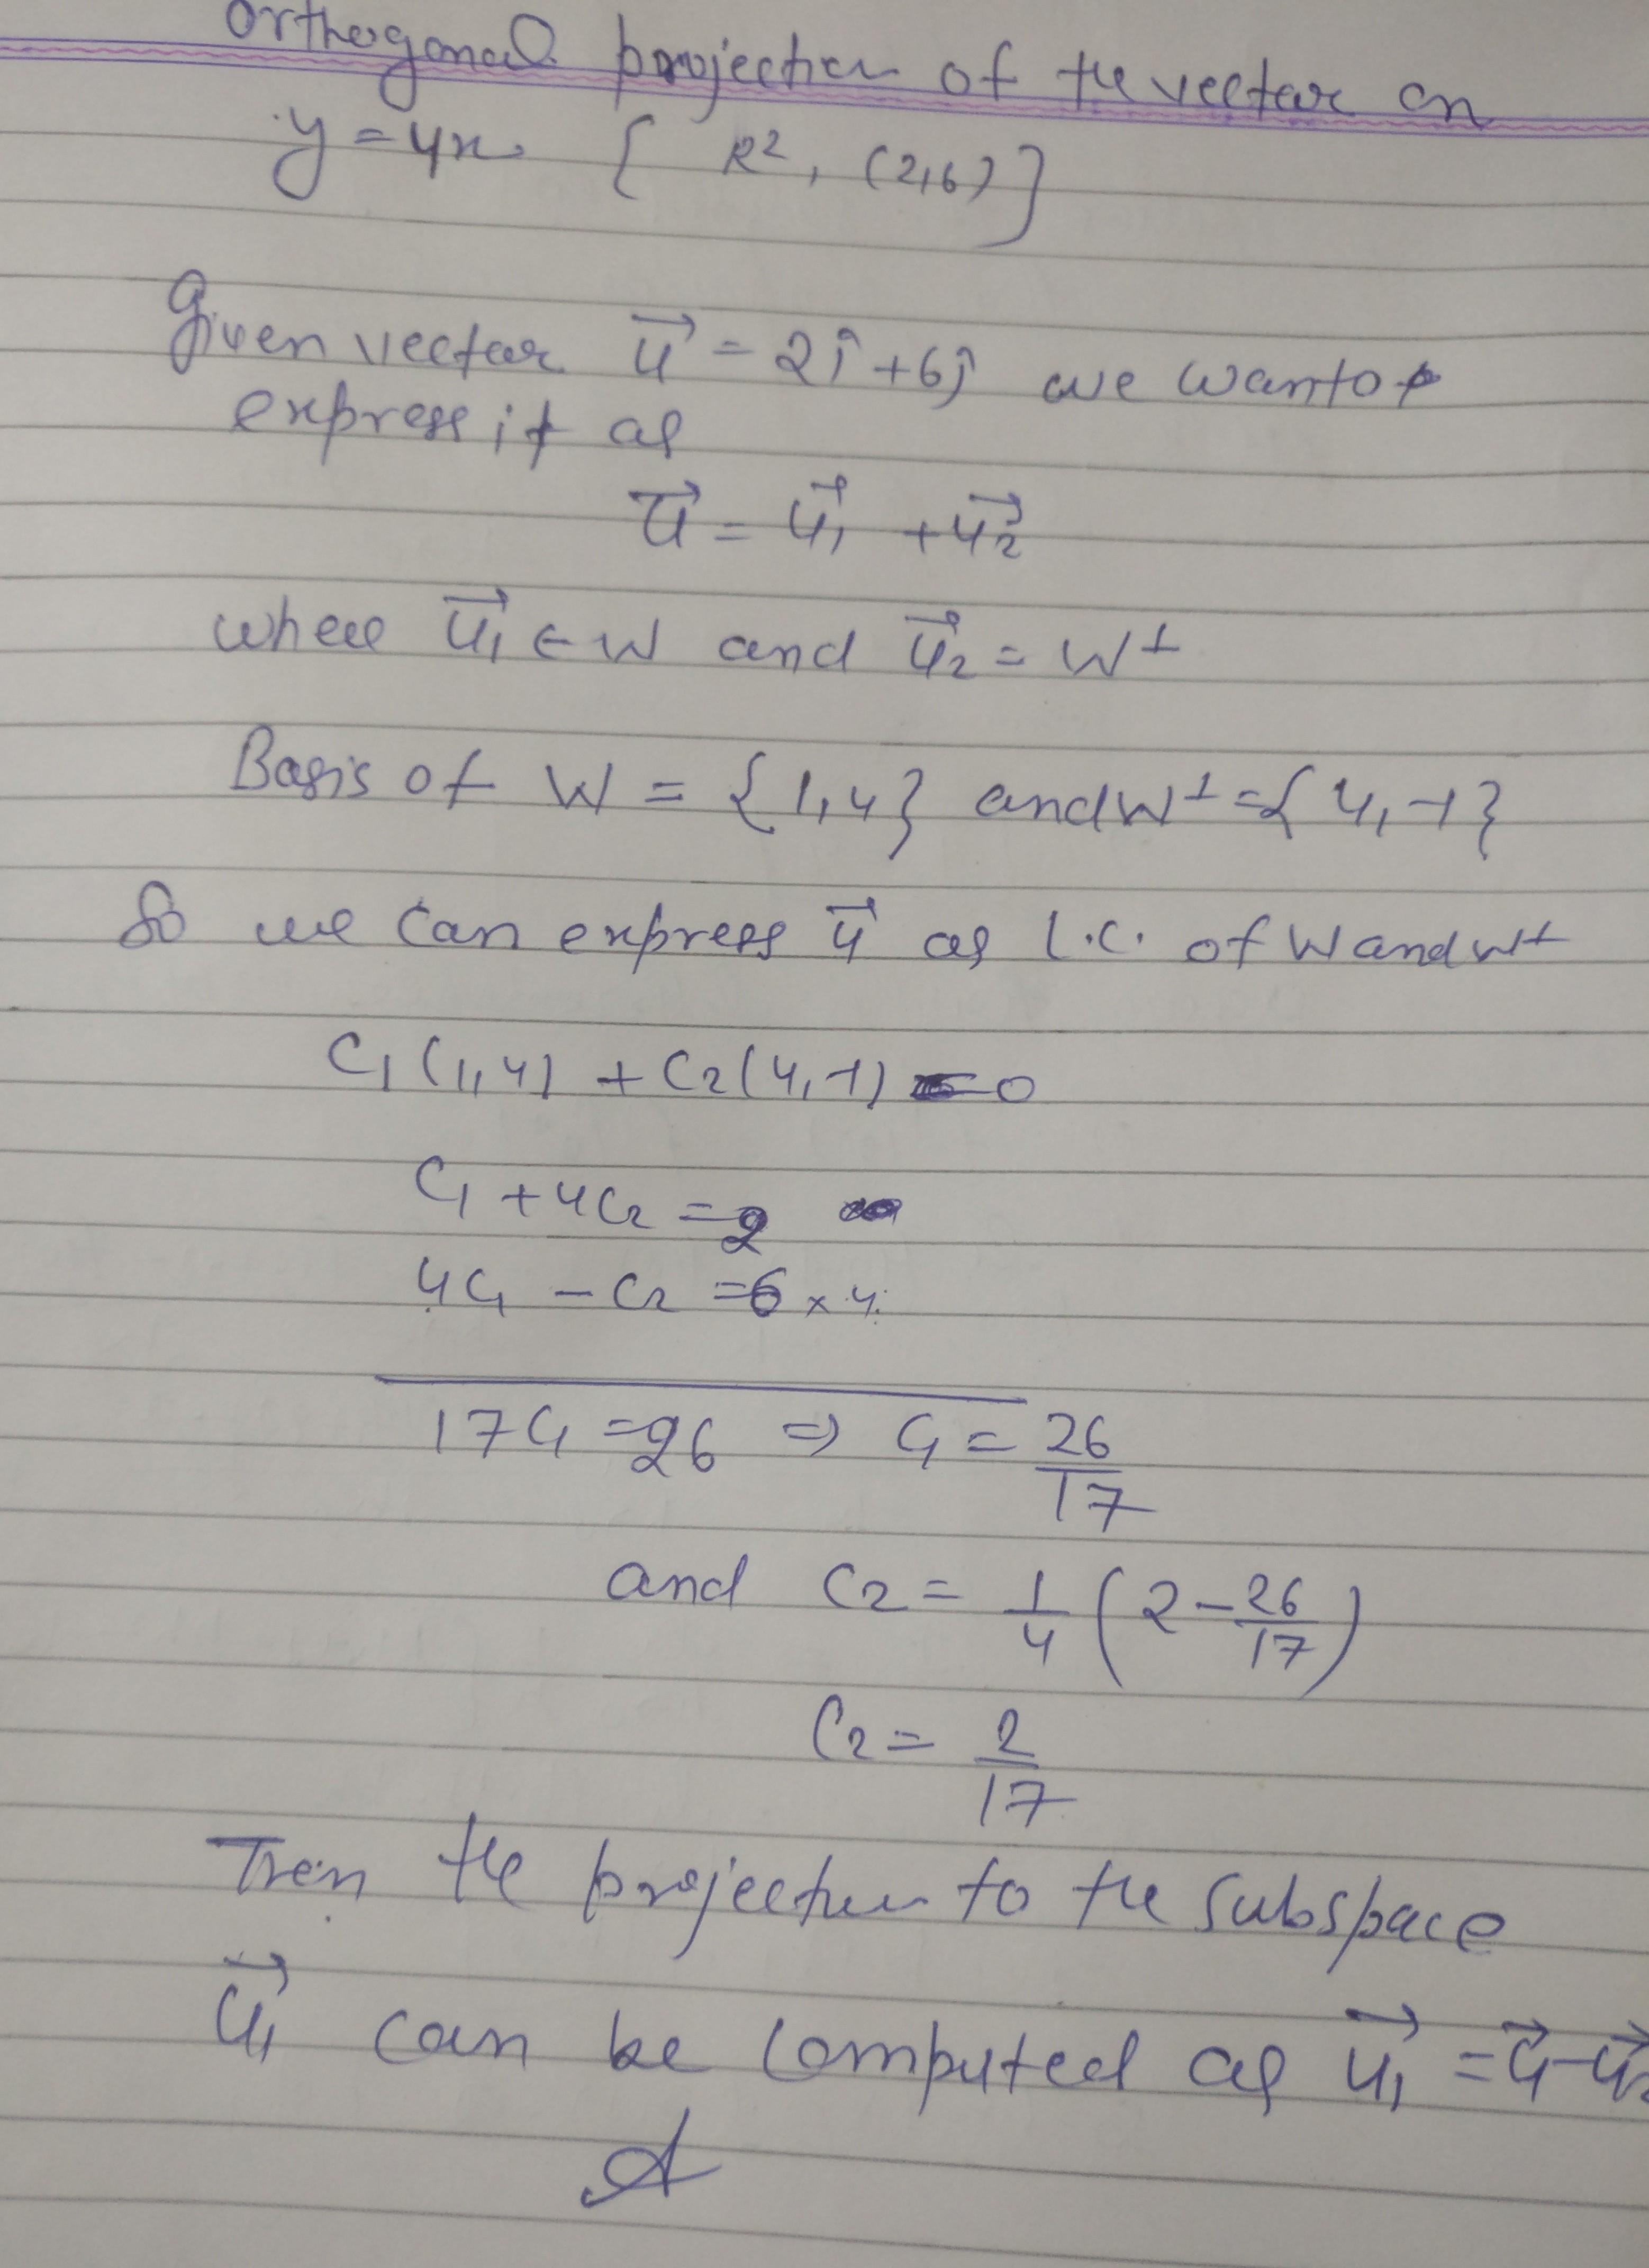 Orthogonal projection of the vector on
y = 4x { R², (2,6) }
Given vector u⃗ = 2î + 6ĵ we want to
express it as
u⃗ = u⃗₁ + u⃗₂
where u⃗₁ ∈ W and u⃗₂ = W⊥
Basis of W = {1,4} and W⊥ = {4,-1}
So we can express u⃗ as l.c. of W and W⊥
C₁(1,4) + C₂(4,-1) = 0
C₁ + 4C₂ = 2
4C₁ - C₂ = 6 × 4
17C₁ = 26 ⇒ C₁ = 26/17
and C₂ = 1/4 (2 - 26/17)
C₂ = 2/17
Then the projection to the subspace
u⃗₁ can be computed as u⃗₁ = u⃗ - u⃗₂